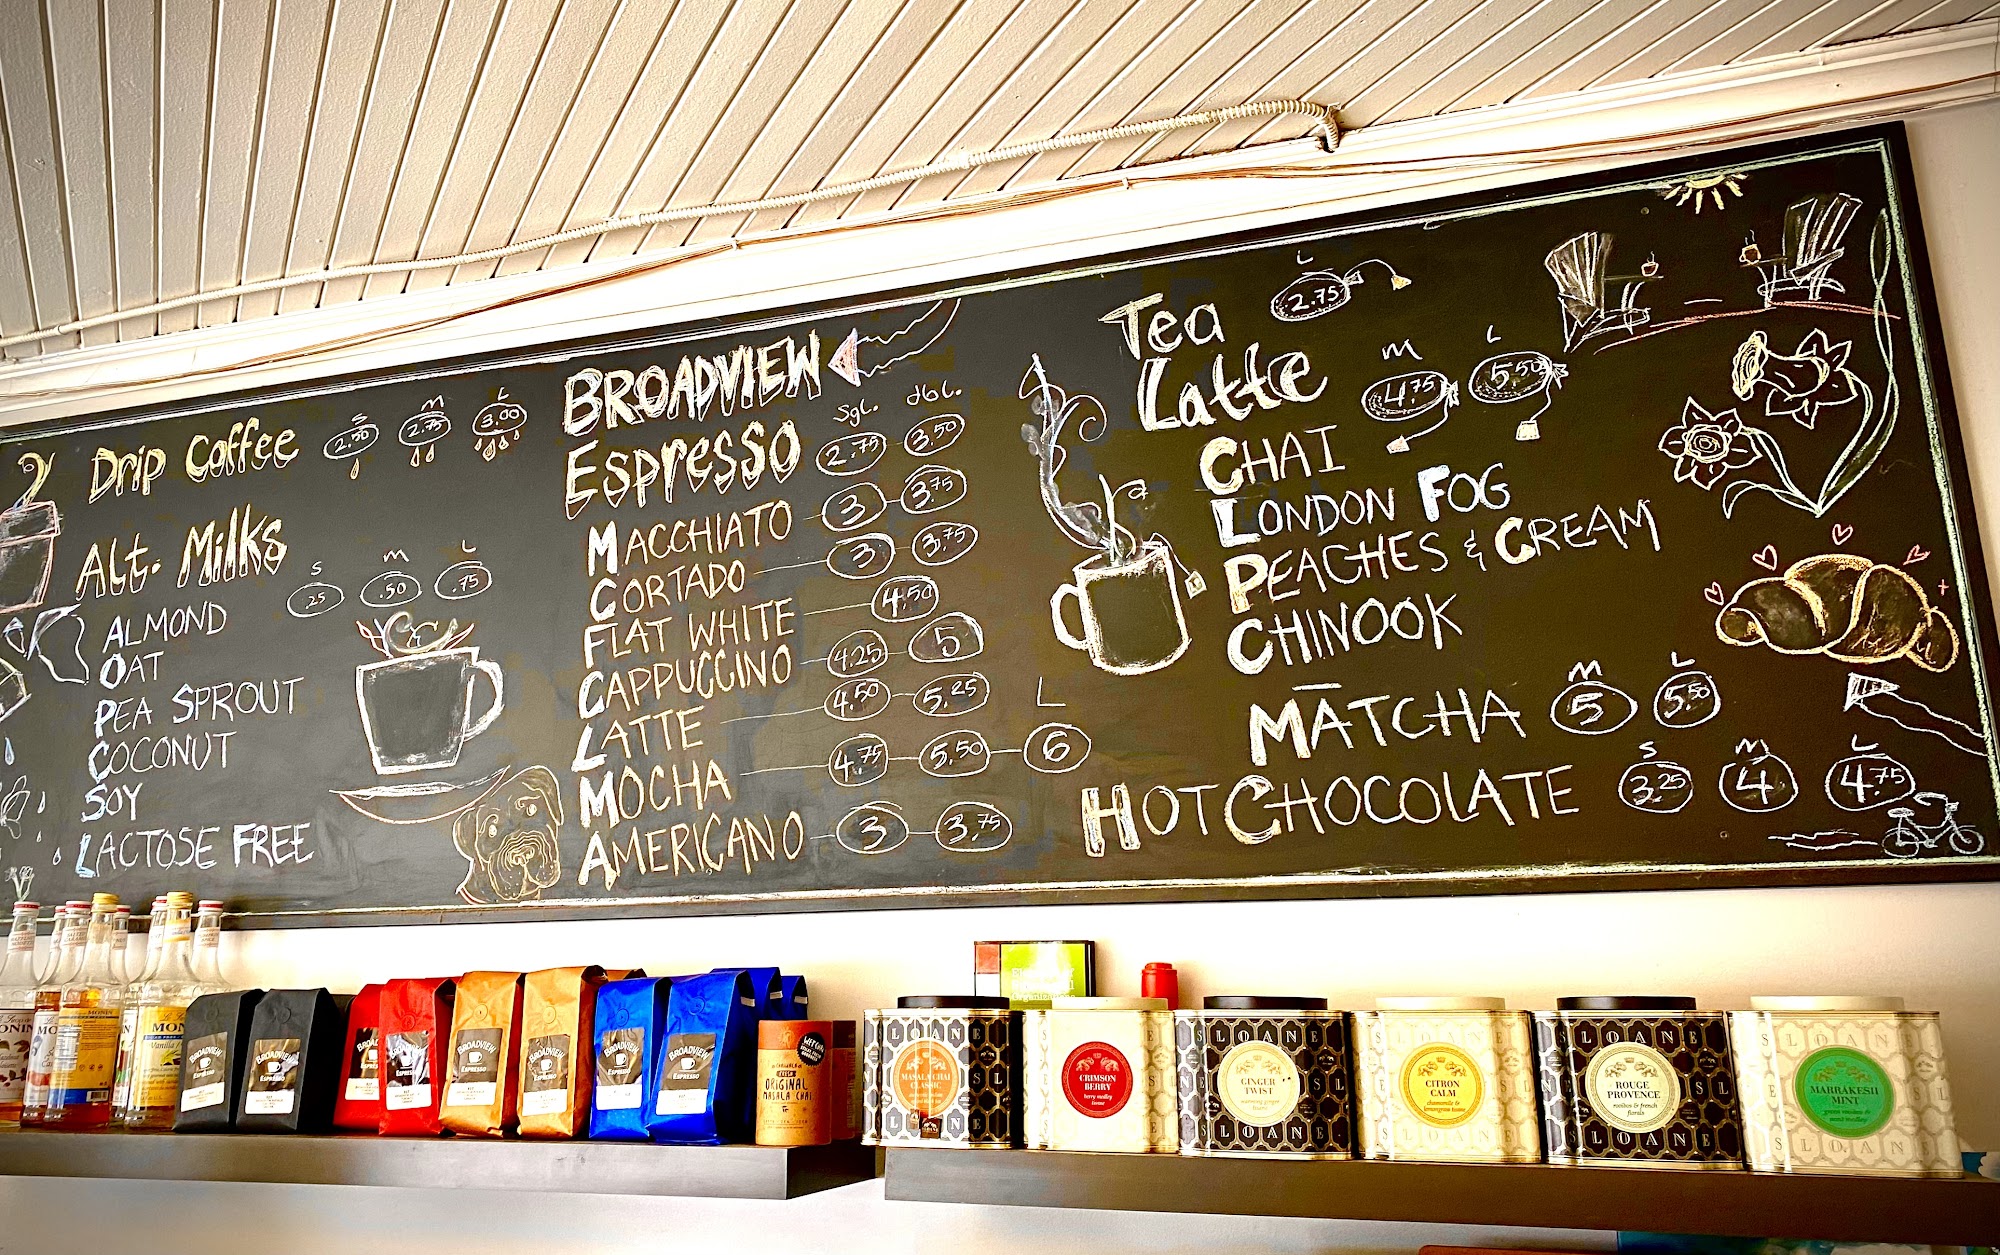 Drip Coffee
S M L
2.50 2.75 3.00
Alt. Milks
S M L
.25 .50 .75
ALMOND
OAT
PEA SPROUT
COCONUT
SOY
LACTOSE FREE
BROADVIEW
Espresso
Sgl. dbl.
2.75 3.50
MACCHIATO 3 3.75
CORTADO 3 3.75
FLAT WHITE 4.50
CAPPUCCINO 4.25 5
LATTE 4.50 5.25
L
MOCHA 4.75 5.50 6
AMERICANO 3 3.75
L
Tea 2.75
M L
Latte 4.75 5.50
CHAI
LONDON FOG
PEACHES & CREAM
CHINOOK
M L
MATCHA 5 5.50
S M L
HOT CHOCOLATE 3.25 4 4.75
MONIN
MONIN
Vanilla
BROADVIEW
ESPRESSO
BROADVIEW
ESPRESSO
BROADVIEW
ESPRESSO
BROADVIEW
ESPRESSO
BROADVIEW
ESPRESSO
BROADVIEW
ESPRESSO
BROADVIEW
ESPRESSO
ORIGINAL
MASALA CHAI
SLOANE
MASALA CHAI
CLASSIC
CRIMSON
BERRY
berry medley
tisane
SLOANE
GINGER
TWIST
SLOANE
SLOANE
CITRON
CALM
chamomile &
lemongrass tisane
SLOANE
SLOANE
ROUGE
PROVENCE
rooibos & french
florals
SLOANE
SLOANE
MARRAKESH
MINT
SLOANE